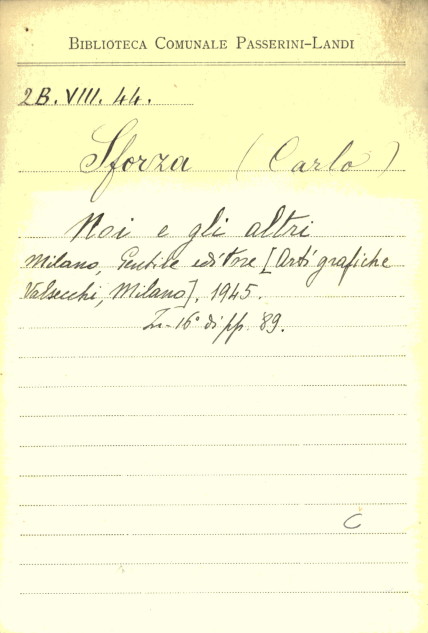 BIBLIOTECA COMUNALE PASSERINI-LANDI
2B. VIII. 44.
Sforza (Carlo)
Noi e gli altri
Milano, Gentile editore [Arti grafiche
Valsecchi, Milano], 1945.
In-16° di pp. 89.
C